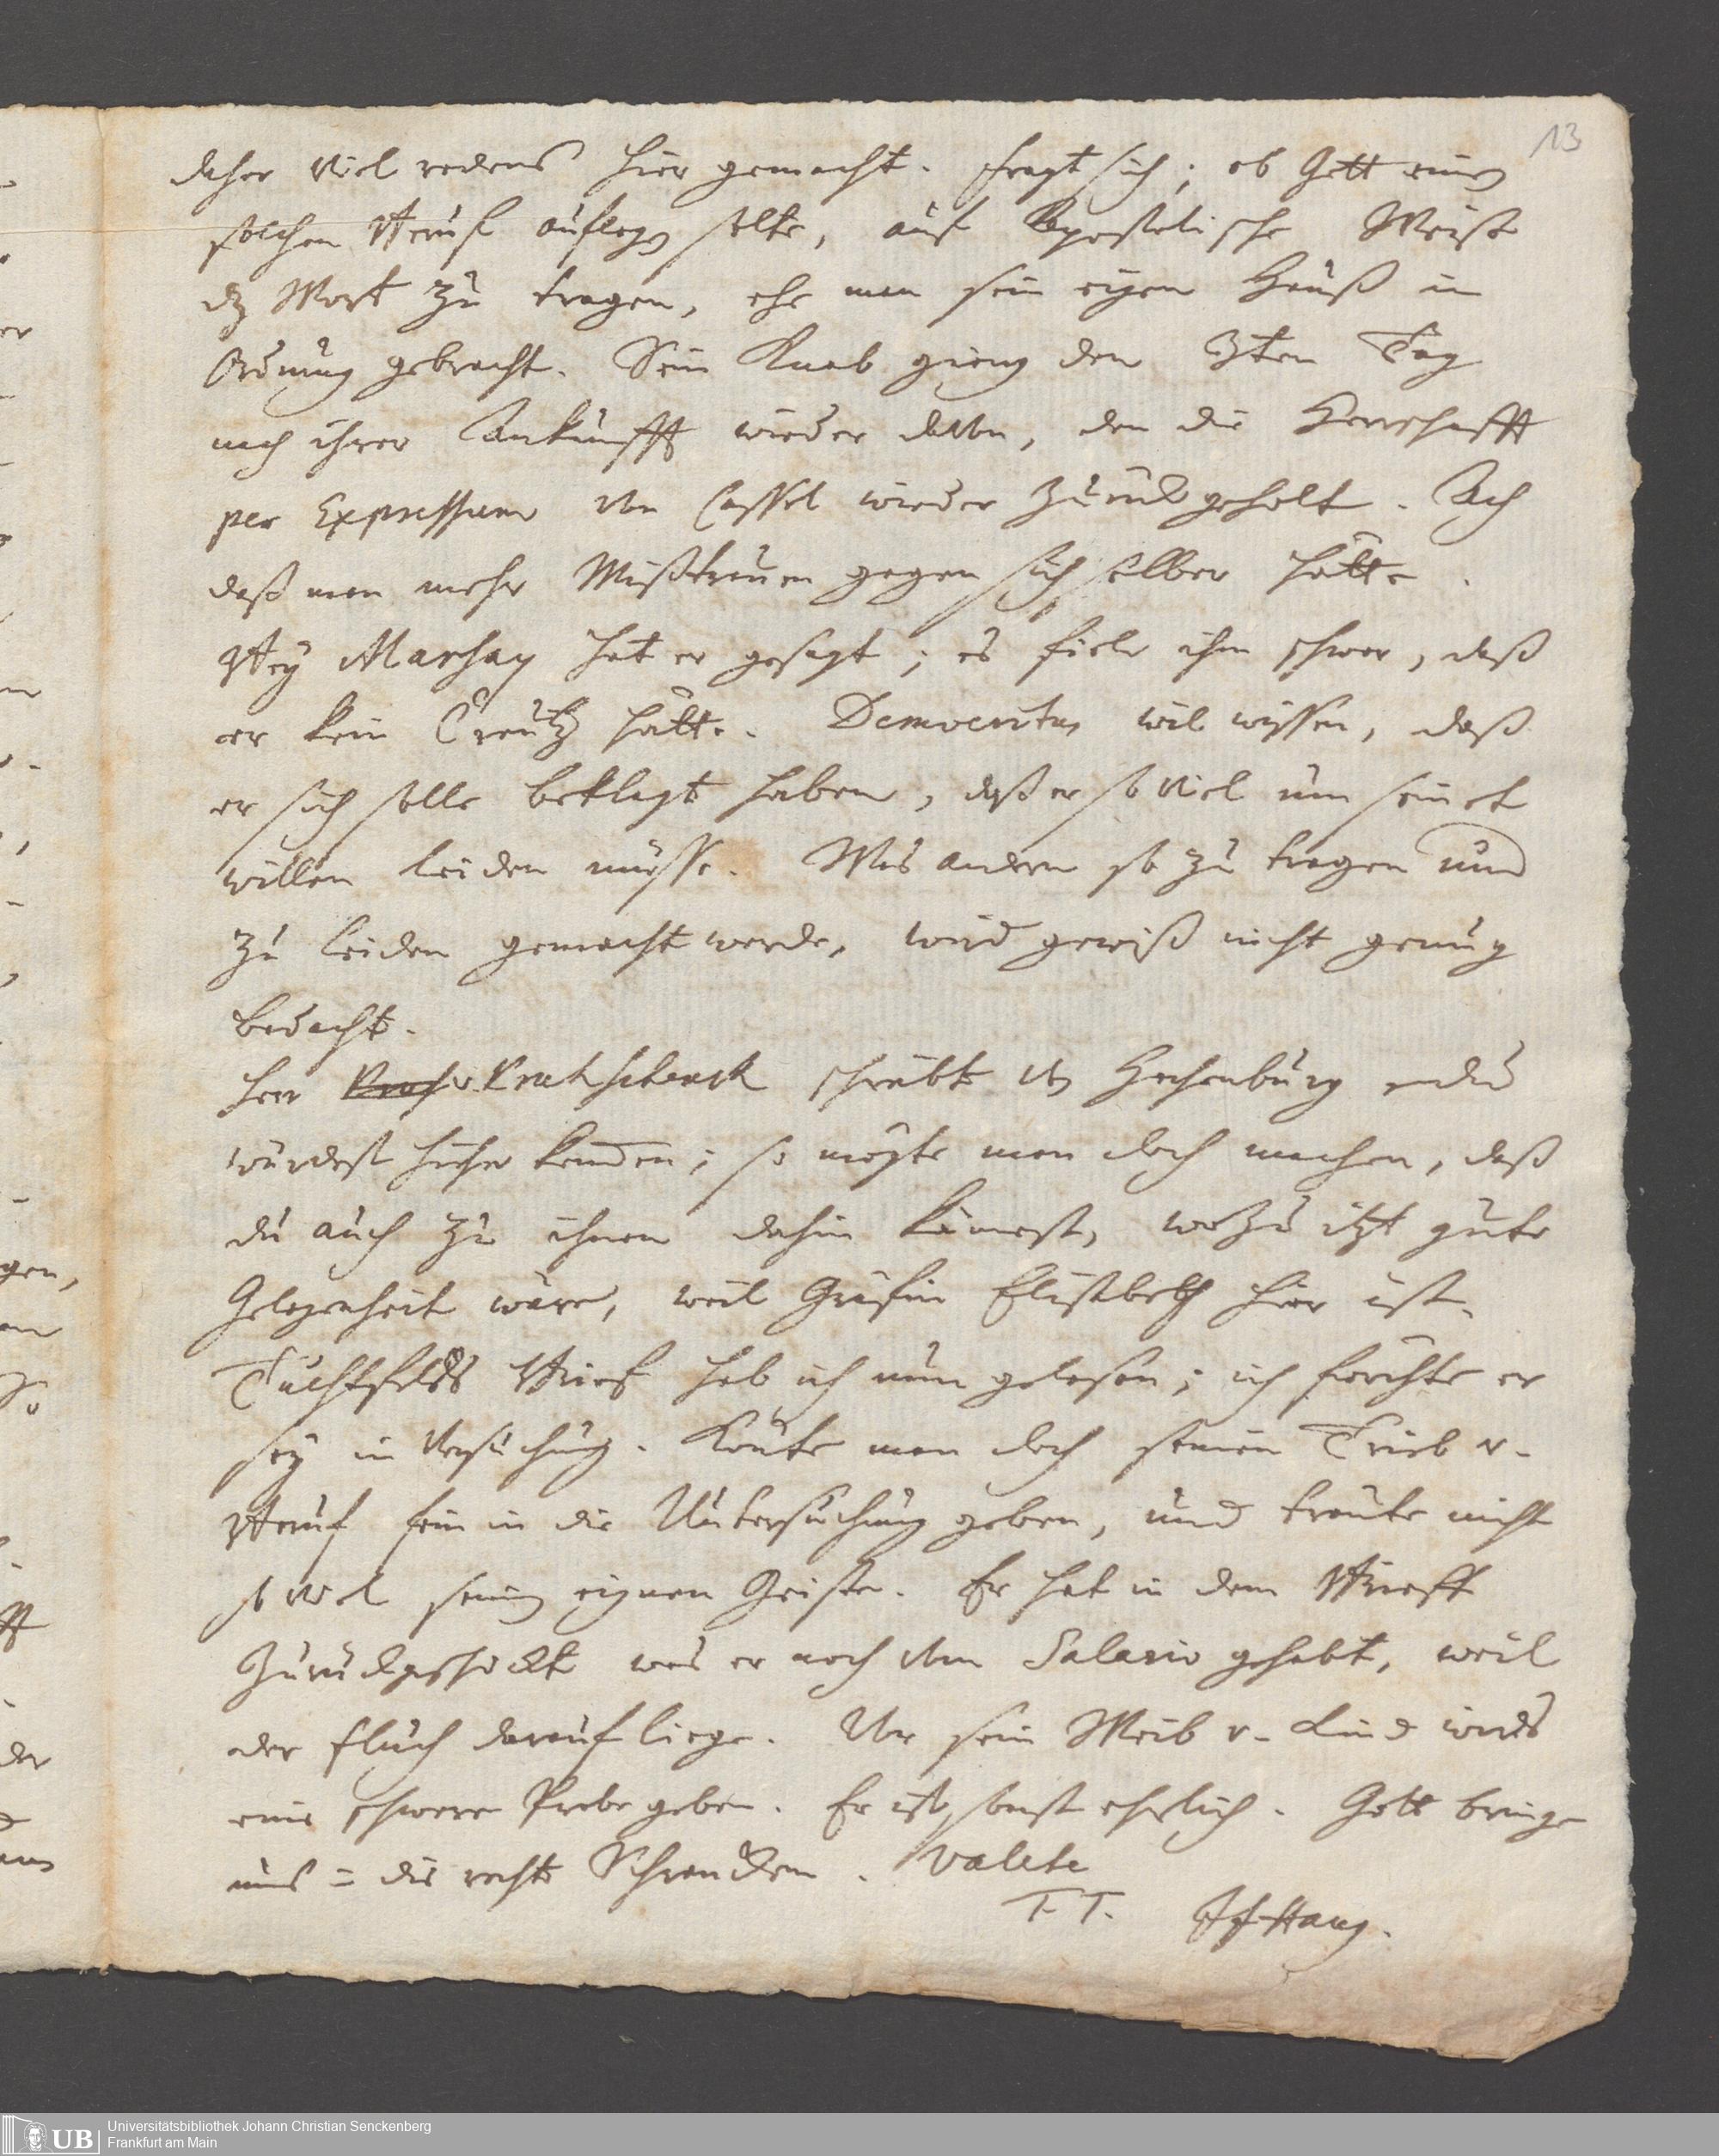 13
daher viel redens hier gemacht. fragt sich; ob Gott einen
solchen Beruf auflegen solte, auf Apostolische Weise
dz Wort zu tragen, ehe man sein eigen Hauß in
Ordnung gebracht. Sein Knab gieng den 3ten Tag
nach ihrer Ankunfft wieder davon, den die Herrschafft
per Expressum von Cassel wieder zurück geholt. Ach
daß man mehr Mißtrauen gegen sich selber hätte.
Bey Marsay hat er gesagt; es fiele ihm schwer, daß
er kein Creutz hätte. Democritus wil wissen, daß
er sich solle beklagt haben, daß er so viel um seinet
willen leiden müsse. Was andern so zu tragen und
zu leiden gemacht werde, wird gewiß nicht genug
bedacht.
Herr schreibt von Hachenburg
würdest hieher kommen; so mögte man doch machen, daß
du auch zu ihnen dahin kämest, wozu itzt gute
Gelegenheit wäre, weil Gräfin Elisabeth hier ist.
Tuchtfelds Brief hab ich nun gelesen; ich förchte er
sey in Versuchung. Könte man doch seinen Trieb u.
Beruf fein in die Untersuchung geben, und traute nicht
so viel seinem eignen Geiste. Er hat in dem Brieff
Zurückgeschickt was er noch vom Salario gehabt, weil
der Fluch darauf liege. Vor sein Weib u. Kind wirds
eine schwere Probe geben. Er ist sonst ehrlich. Gott bringe
uns in die rechte Schrancken. Valete
T. T. Haug.
Universitätsbibliothek Johann Christian Senckenberg
Frankfurt am Main
UB